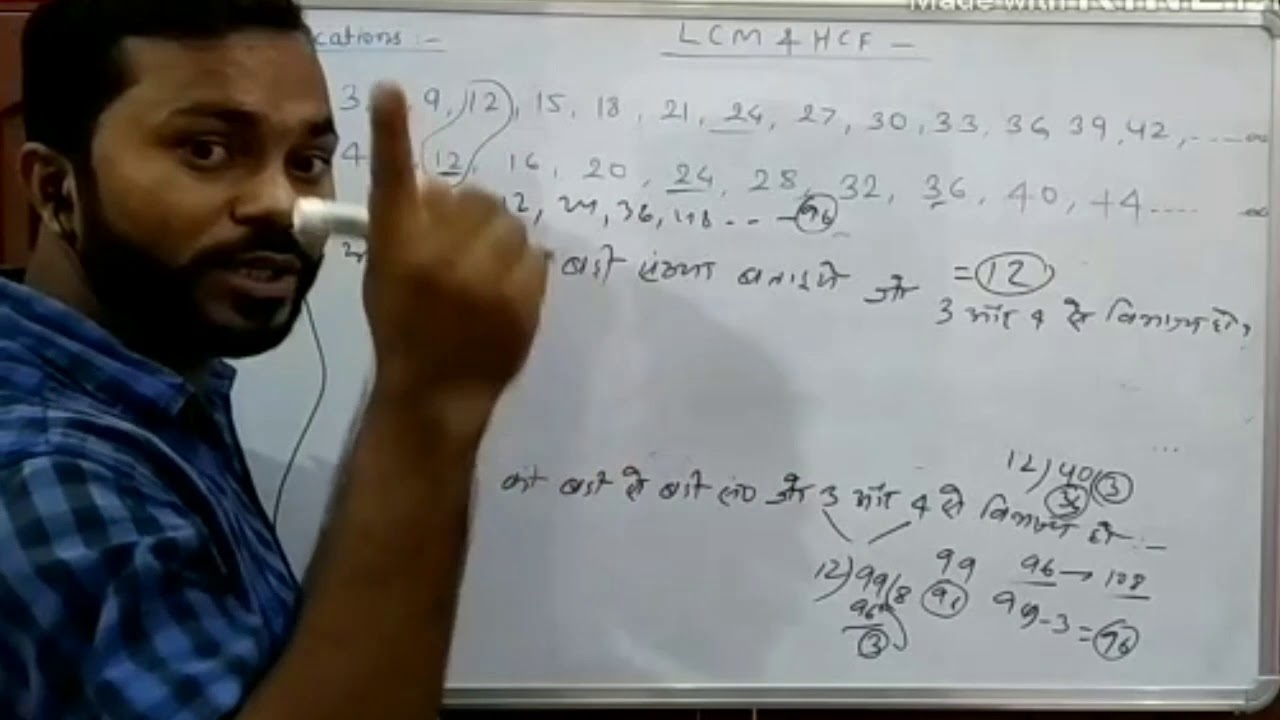 Made with KINE
cations :-
LCM & HCF -
3, 9, 12, 15, 18, 21, 24, 27, 30, 33, 36, 39, 42, ------∞
4 12, 16, 20, 24, 28, 32, 36, 40, 44 ---- ∞
12, 24, 36, 48 -- - 96
= 12
बड़ी संख्या बताइये जो 3 और 4 से विभाज्य हो,
की बड़ी से बड़ी सं० जो 3 और 4 से विभाज्य हो :-
12) 40 ( 3
36
12) 99 ( 8
96
3
99
96 → 108
99-3 = 96